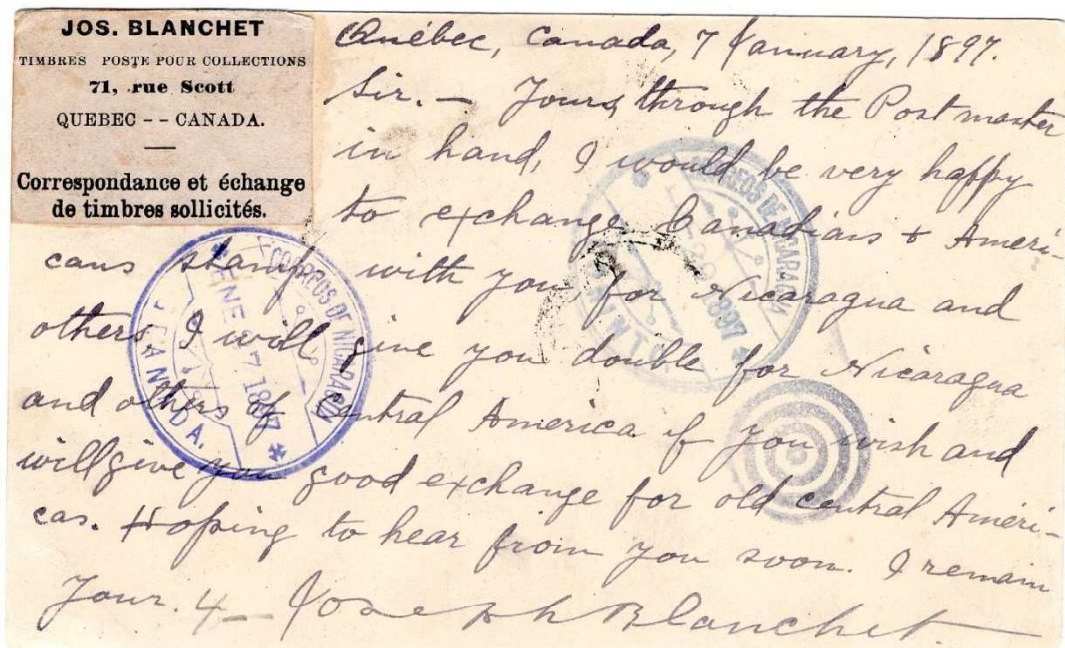 JOS. BLANCHET
TIMBRES POSTE POUR COLLECTIONS
71, rue Scott
QUEBEC - - CANADA.
Correspondance et échange
de timbres sollicités.
Québec, Canada, 7 January, 1897.
Sir. — Yours, through the Postmaster
in hand, I would be very happy
to exchange Canadians + Ameri-
cans stamps with you, for Nicaragua and
others. I will give you double for Nicaragua
and others of Central America if you wish and
will give you good exchange for old central Améri-
cas. Hoping to hear from you soon. I remain
Your.
Joseph Blanchet.
CORREOS DE NICARAGUA
ENE 27 1897
CORREOS DE NICARAGUA
1897